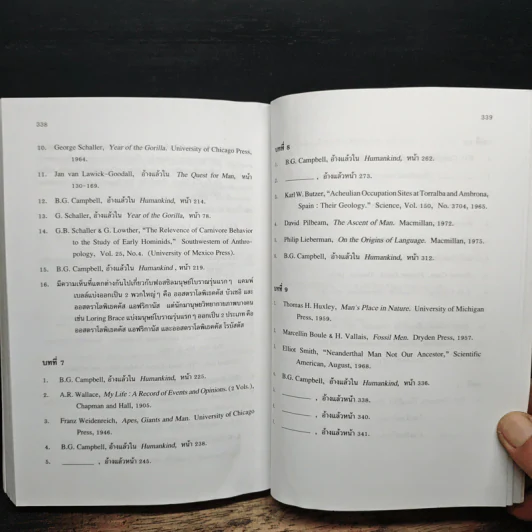 338
10. George Schaller, Year of the Gorilla. University of Chicago Press,
1964.
11. Jan van Lawick-Goodall, อ้างแล้วใน The Quest for Man, หน้า
130-169.
12. B.G. Campbell, อ้างแล้วใน Humankind, หน้า 214.
13. G. Schaller, อ้างแล้วใน Year of the Gorilla, หน้า 78.
14. G.B. Schaller & G. Lowther, "The Relevence of Carnivore Behavior
to the Study of Early Hominids," Southwestern of Anthro-
pology, Vol. 25, No.4. (University of Mexico Press).
15. B.G. Campbell, อ้างแล้วใน Humankind, หน้า 219.
16. มีความเห็นที่แตกต่างกันไปเกี่ยวกับฟอสซิลมนุษย์โบราณรุ่นแรกๆ แคมพ์
เบลล์แบ่งออกเป็น 2 พวกใหญ่ๆ คือ ออสตราโลพิเธคคัส บัวเซอิ และ
ออสตราโลพิเธคคัส แอฟริกานัส แต่นักมานุษยวิทยากายภาพบางคน
เช่น Loring Brace แบ่งมนุษย์โบราณรุ่นแรกๆ ออกเป็น 2 ประเภท คือ
ออสตราโลพิเธคคัส แอฟริกานัส และออสตราโลพิเธคคัส โรบัสตัส
บทที่ 7
1. B.G. Campbell, อ้างแล้วใน Humankind, หน้า 225.
2. A.R. Wallace, My Life : A Record of Events and Opinions. (2 Vols.),
Chapman and Hall, 1905.
3. Franz Weidenreich, Apes, Giants and Man. University of Chicago
Press, 1946.
4. B.G. Campbell, อ้างแล้วใน Humankind, หน้า 238.
5. ________, อ้างแล้วหน้า 245.
339
บทที่ 8
B.G. Campbell, อ้างแล้วใน Humankind, หน้า 262.
________, อ้างแล้วหน้า 273.
Karl W. Butzer, "Acheulian Occupation Sites at Torralba and Ambrona,
Spain : Their Geology." Science, Vol. 150, No. 3704, 1965.
David Pilbeam, The Ascent of Man. Macmillan, 1972.
Philip Lieberman, On the Origins of Language. Macmillan, 1975.
B.G. Campbell, อ้างแล้วใน Humankind, หน้า 312.
บทที่ 9
Thomas H. Huxley, Man's Place in Nature. University of Michigan
Press, 1959.
Marcellin Boule & H. Vallais, Fossil Men. Dryden Press, 1957.
Elliot Smith, "Neanderthal Man Not Our Ancestor," Scientific
American, August, 1968.
B.G. Campbell, อ้างแล้วใน Humankind, หน้า 336.
________, อ้างแล้วหน้า 338.
________, อ้างแล้วหน้า 340.
________, อ้างแล้วหน้า 341.